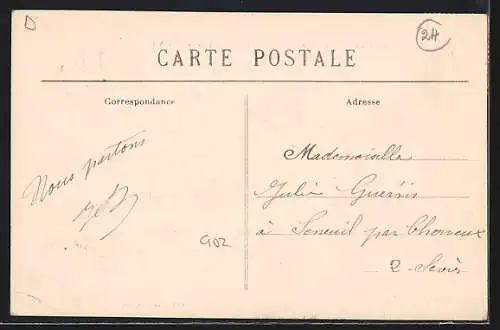 D
24
CARTE POSTALE
Correspondance
Adresse
Nous partons
Mademoiselle
Julie Guérin
à Seneuil par Cherveux
2-Sèvres
902